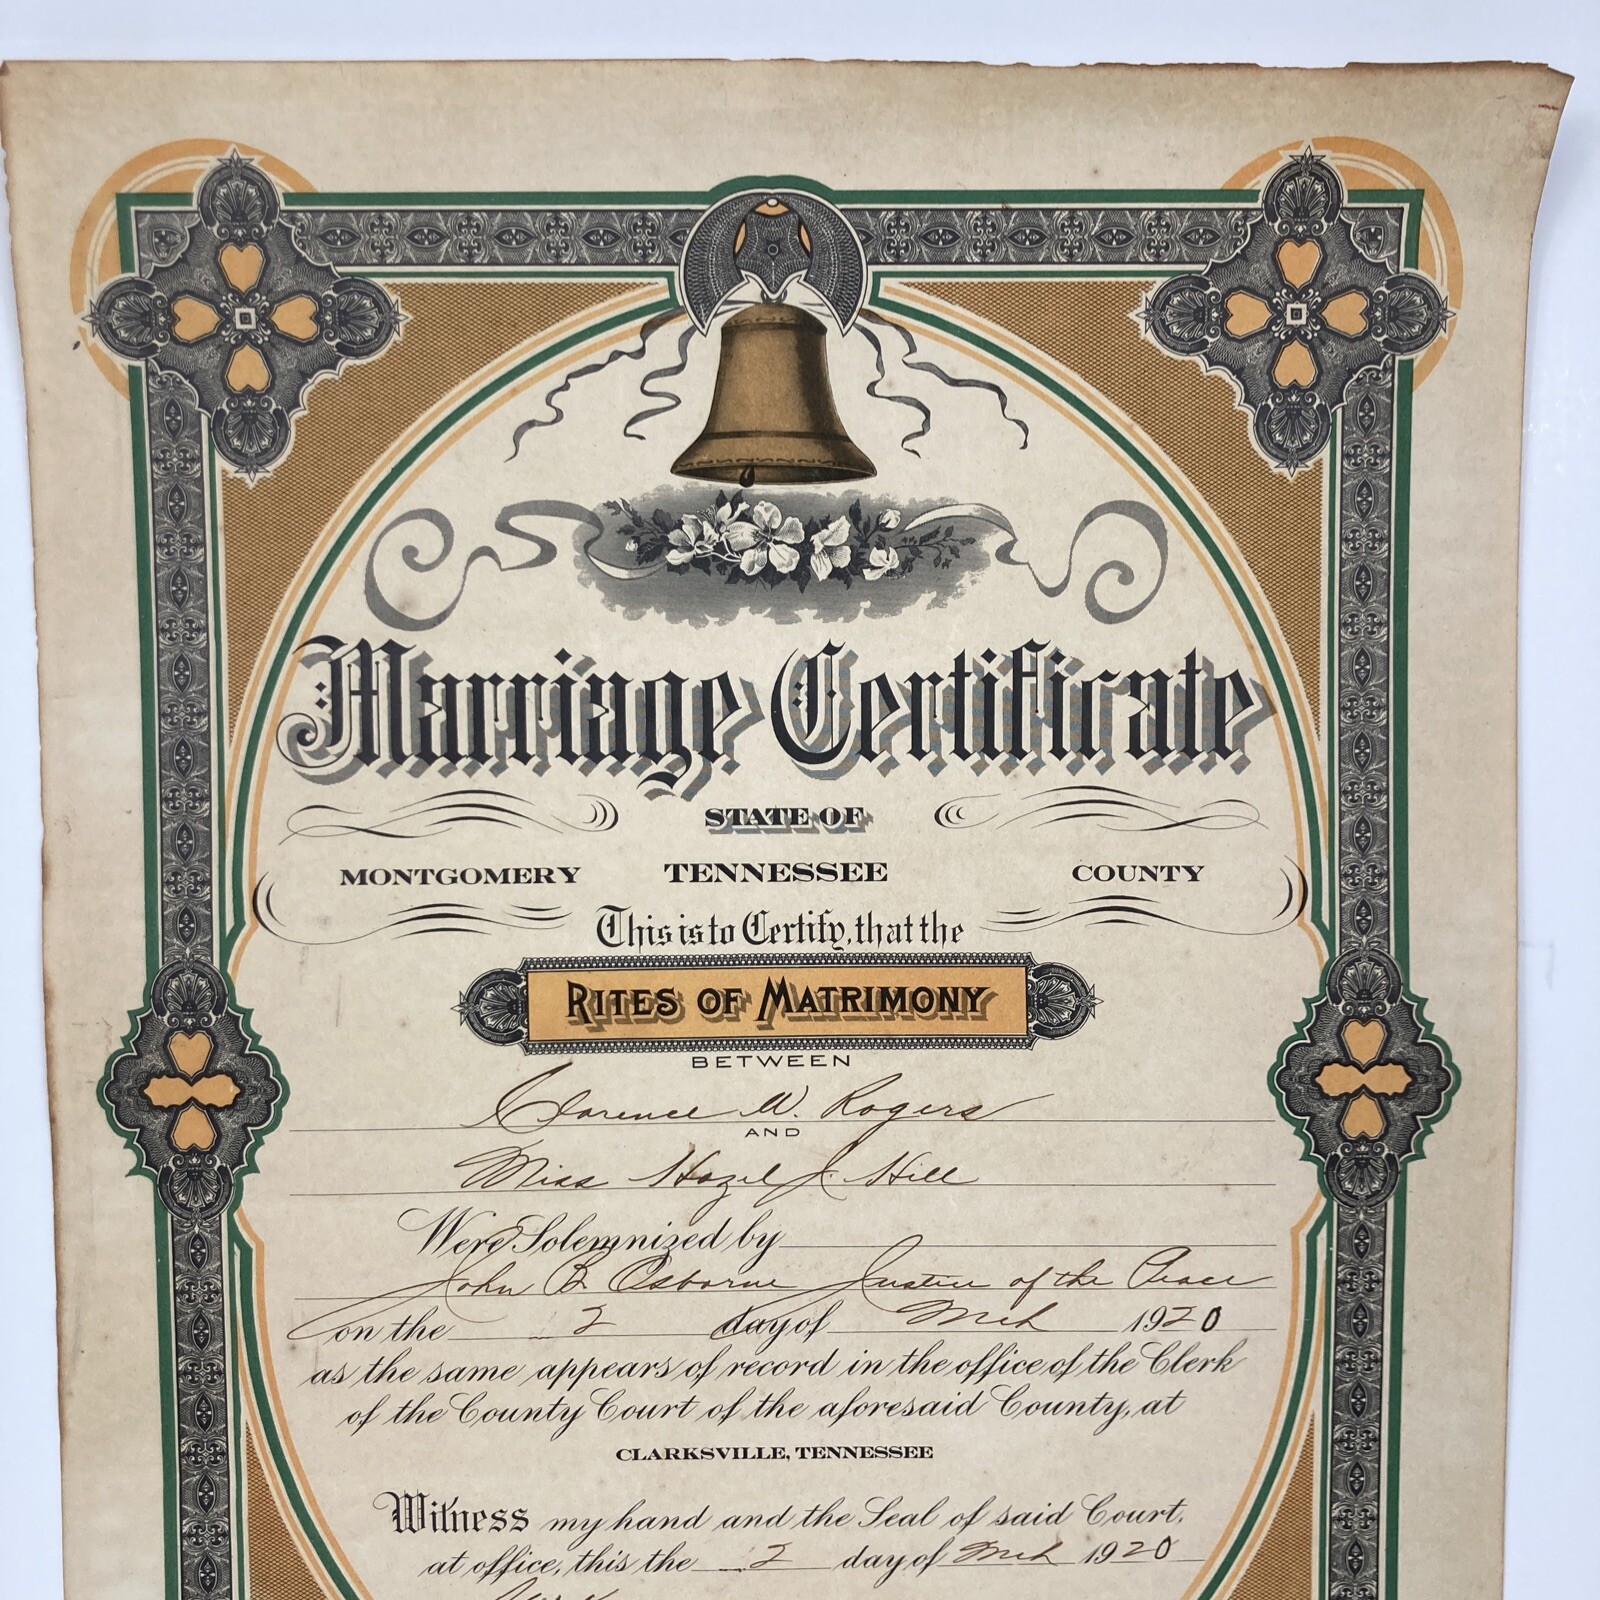 Marriage Certificate
STATE OF
MONTGOMERY TENNESSEE COUNTY
This is to Certify, that the
RITES OF MATRIMONY
BETWEEN
Clarence W. Rogers
AND
Miss Hazel J. Hill
Were Solemnized by
John B Osborne Justice of the Peace
on the 2 day of Mch 1920
as the same appears of record in the office of the Clerk
of the County Court of the aforesaid County, at
CLARKSVILLE, TENNESSEE
Witness my hand and the Seal of said Court,
at office, this the 2 day of Mch 1920